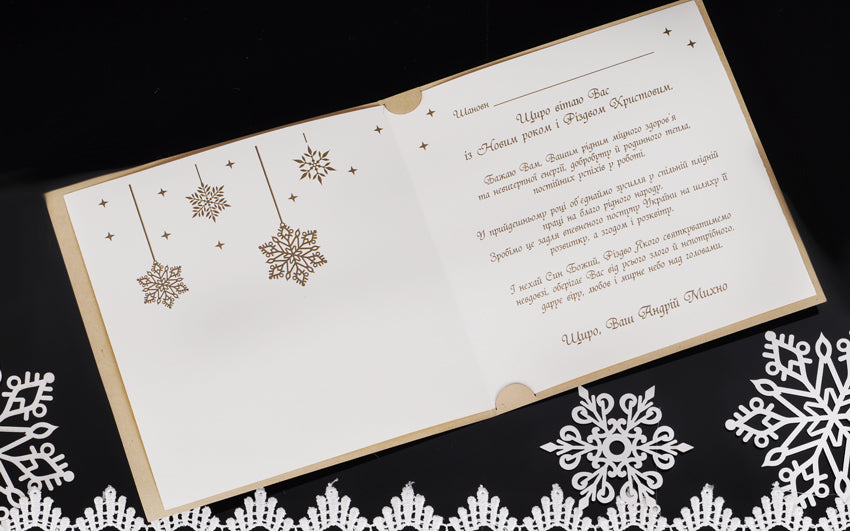 Шановн
Щиро вітаю Вас
із Новим роком і Різдвом Христовим.
Бажаю Вам, Вашим рідним міцного здоров'я
та невичерпної енергії, добробуту й родинного тепла,
постійних успіхів у роботі.
У прийдешньому році об'єднаймо зусилля у спільній плідній
праці на благо рідного народу.
Зробімо це задля впевненого поступу України на шляху її
розвитку, а згодом і розквіту.
І нехай Син Божий, Різдво Якого святкуватимемо
невдовзі, оберігає Вас від усього злого й непотрібного,
дарує віру, любов і мирне небо над головами.
Щиро, Ваш Андрій Михно